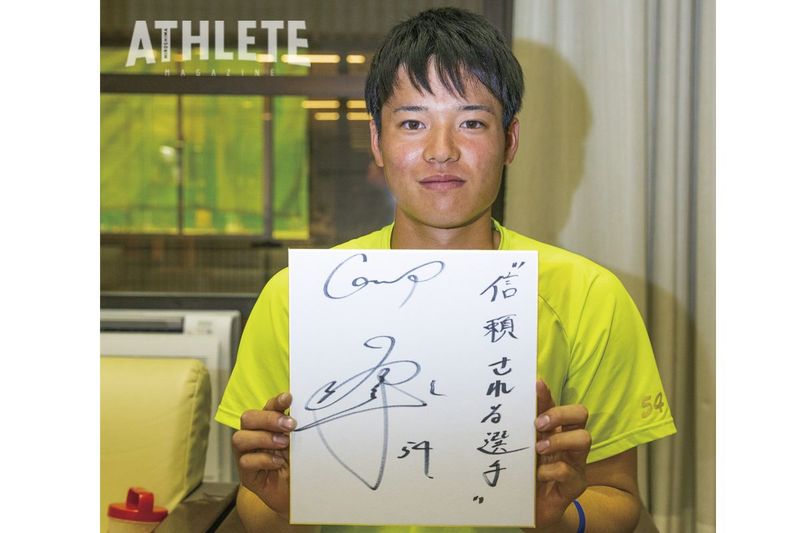 HIROSHIMA
ATHLETE
MAGAZINE
“信頼される選手”
Carp
54
54